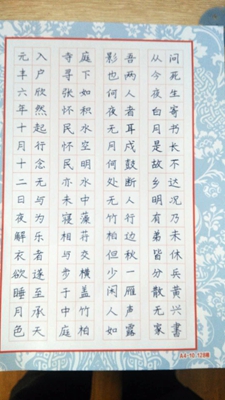 元丰六年十月十二日夜解衣欲睡月色
入户欣然起行念无与为乐者遂至承天
寺寻张怀民怀民亦未寝相与步于中庭
庭下如积水空明水中藻荇交横盖竹柏
影也何夜无月何处无竹柏但少闲人如
吾两人者耳戍鼓断人行边秋一雁声露
从今夜白月是故乡明有弟皆分散无家
问死生寄书长不达况乃未休兵黄兴書
A4-10-128格